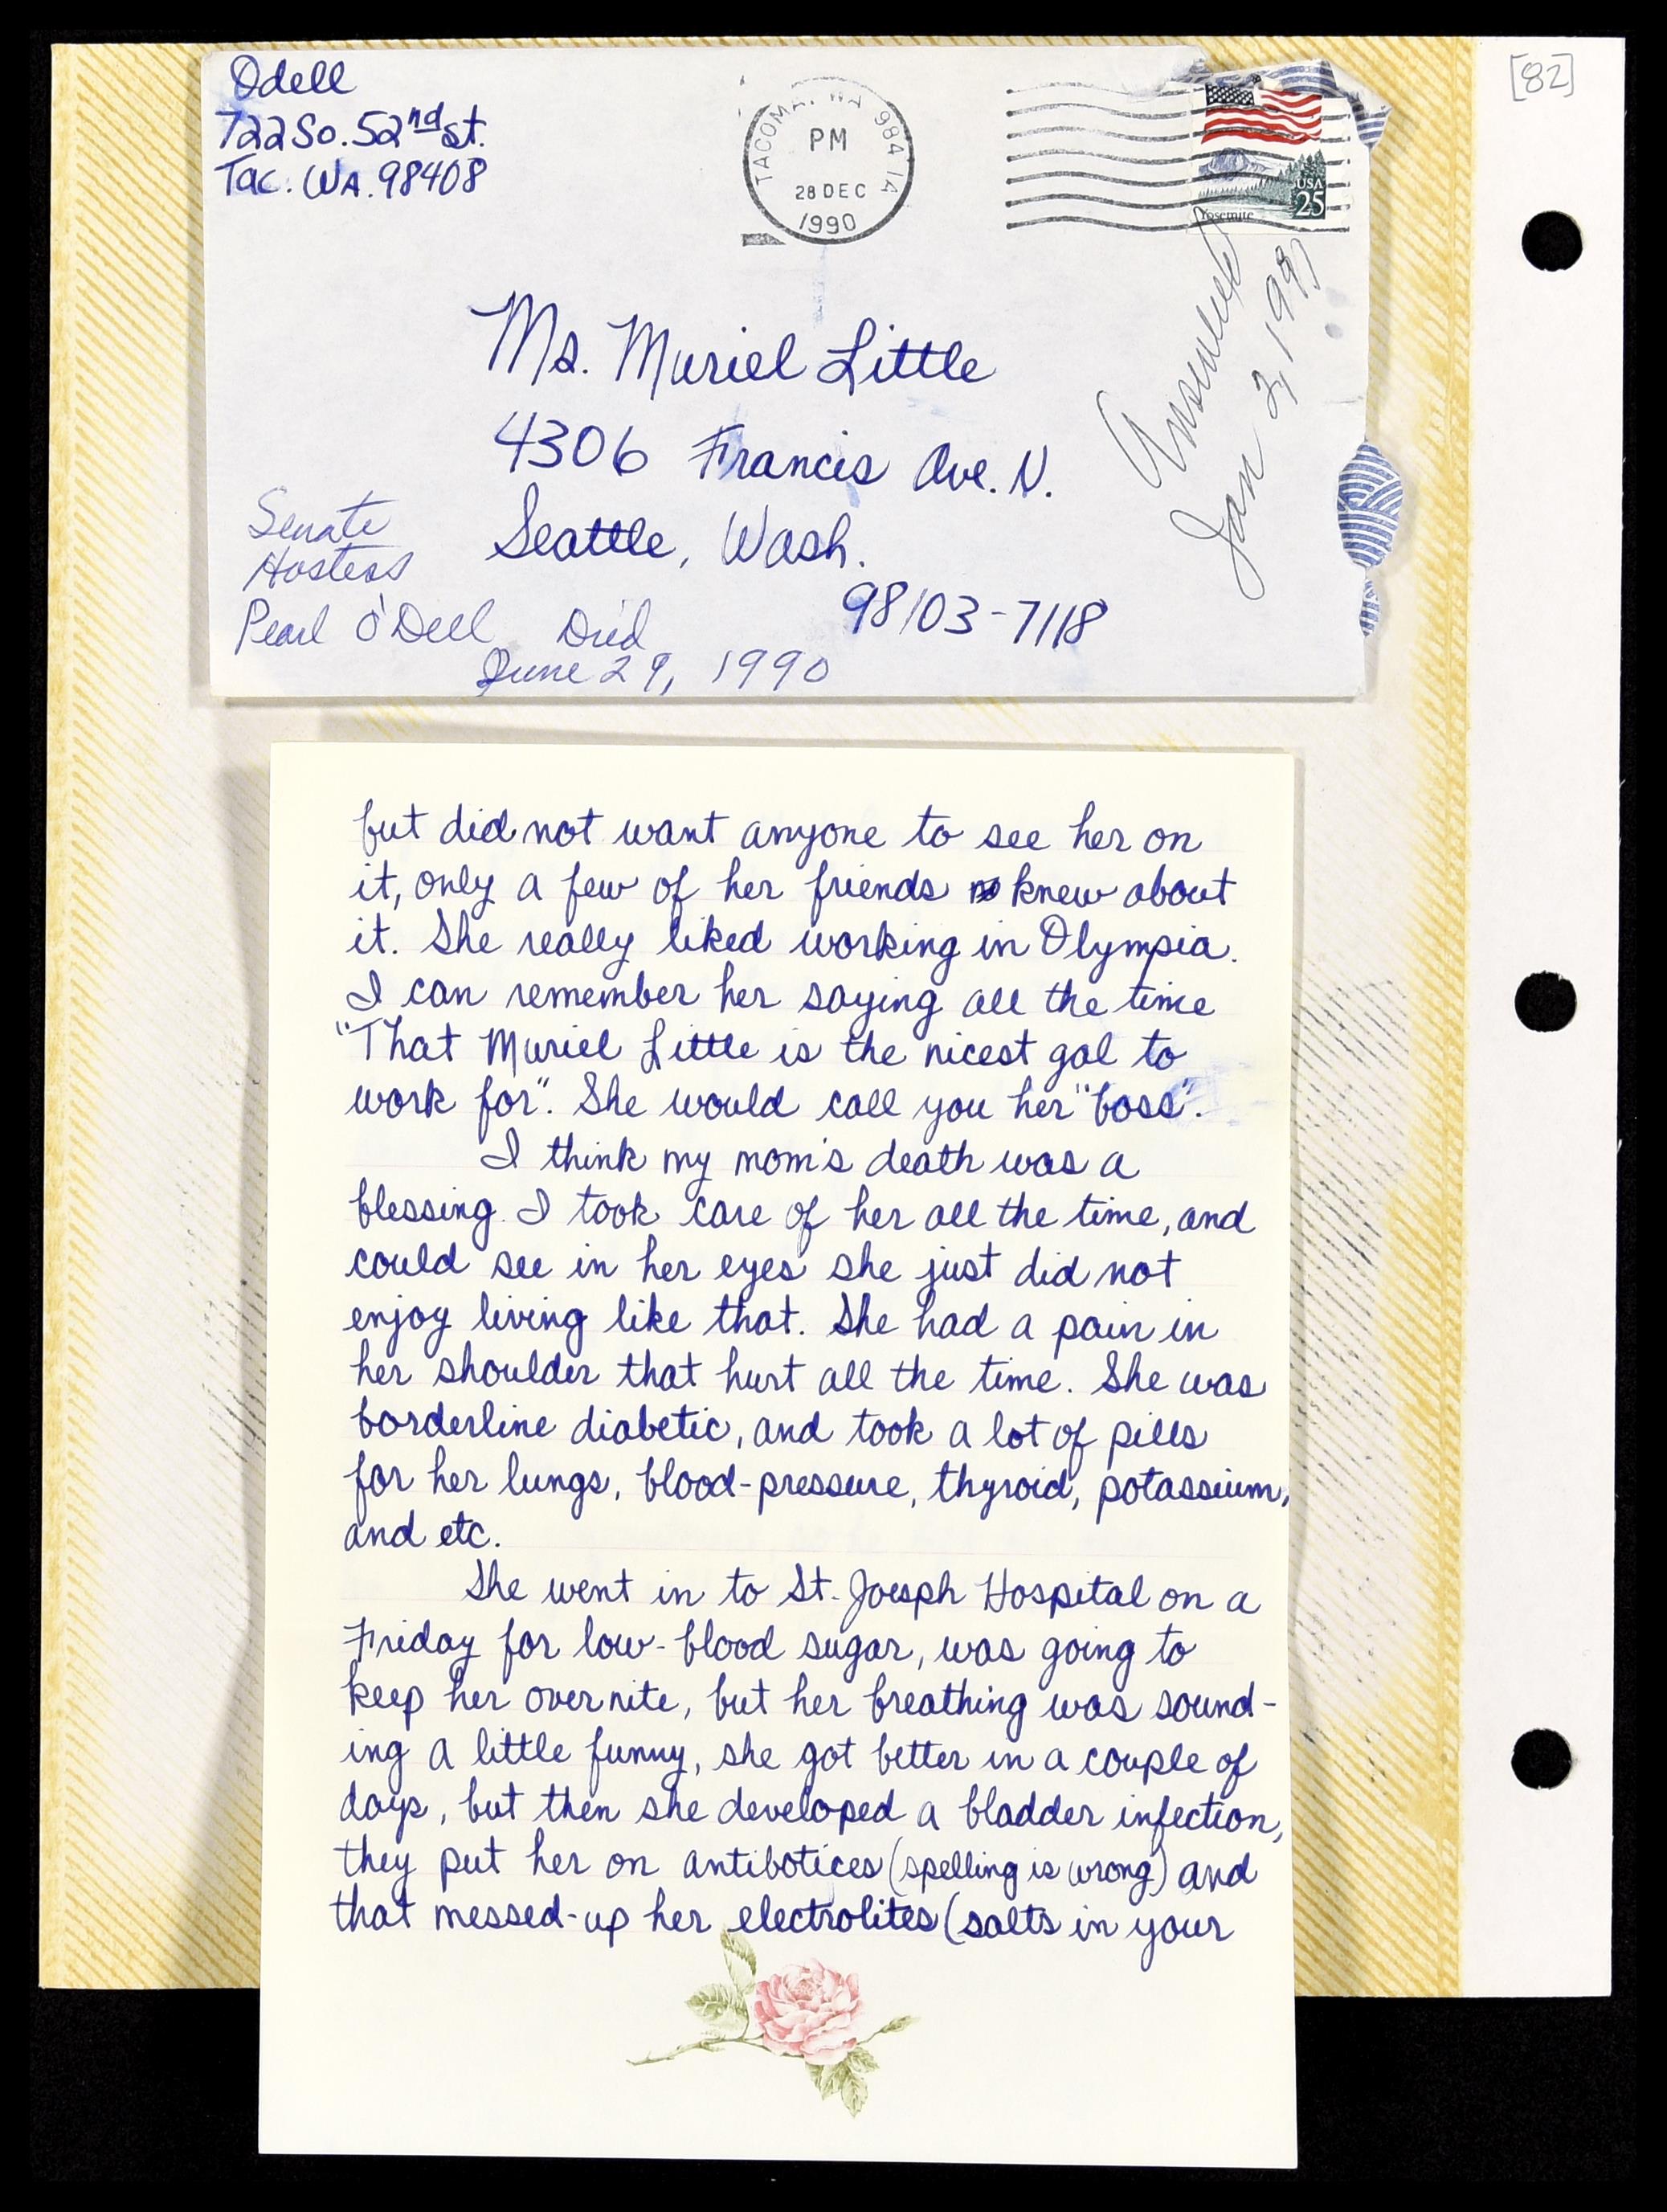 [82]
Odell
722 So. 52nd st.
Tac. WA. 98408
TACOMA. WA 98414
PM
28 DEC
1990
USA
25
Yosemite
Answered
Jan 3, 1991
Ms. Muriel Little
4306 Francis Ave. N.
Seattle, Wash.
98103-7118
Senate
Hostess
Pearl O'Dell Died
June 29, 1990
but did not want anyone to see her on
it, only a few of her friends knew about
it. She really liked working in Olympia.
I can remember her saying all the time
"That Muriel Little is the nicest gal to
work for". She would call you her "boss".
I think my mom's death was a
blessing. I took care of her all the time, and
could see in her eyes she just did not
enjoy living like that. She had a pain in
her shoulder that hurt all the time. She was
borderline diabetic, and took a lot of pills
for her lungs, blood-pressure, thyroid, potassium,
and etc.
She went in to St. Joesph Hospital on a
Friday for low-blood sugar, was going to
keep her over nite, but her breathing was sound-
ing a little funny, she got better in a couple of
days, but then she developed a bladder infection,
they put her on antibotices (spelling is wrong) and
that messed-up her electrolites (salts in your